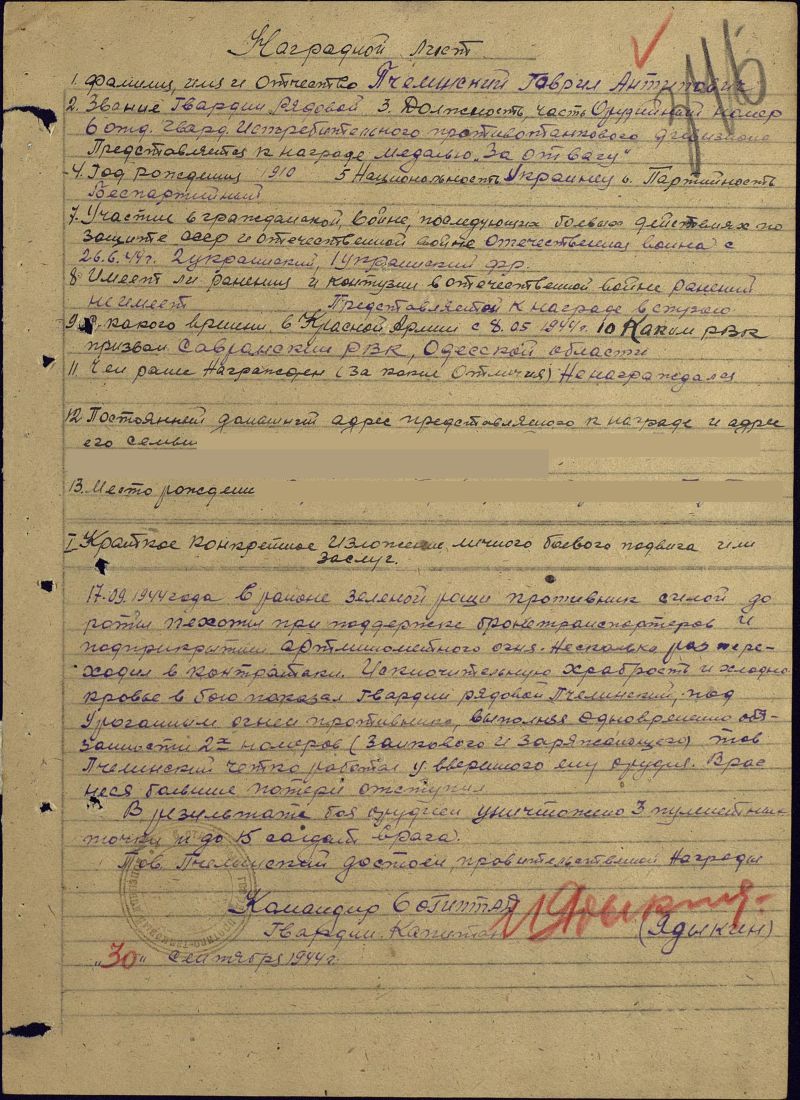 Наградной лист
1. Фамилия, имя и отчество Пчелинский Гаврил Антипович
2. Звание Гвардии Рядовой 3. Должность, часть Орудийный номер
6 отд. Гвард. Истребительного противотанкового дивизиона
Представляется к награде медалью "За отвагу"
4. Год рождения 1910 5 Национальность Украинец 6. Партийность
Беспартийный
7. Участие в гражданской войне, последующих боевых действиях по
защите СССР и отечественной войне Отечественная война с
26.6.44г. 2 украинский, 1 украинский фр.
8. Имеет ли ранения и контузии в отечественной войне Ранений
не имеет Представляется к награде впервые
9. С какого времени в Красной Армии с 8.05 1944г. 10 Каким РВК
призван Савранским РВК, Одесской области
11. Чем ранее Награжден (за какие Отличия) Не награждался
12. Постоянный домашний адрес представляемого к награде и адрес
его семьи
13. Место рождения
I Краткое конкретное изложение личного боевого подвига или
заслуг.
17.09.1944 года в районе Зеленой рощи противник силой до
роты пехоты при поддержке бронетранспортеров и
под прикрытием артминометного огня. Несколько раз пере-
ходил в контратаки. Исключительную храбрость и хладно
кровье в бою показал Гвардии рядовой Пчелинский, под
Ураганным огнем противника, выполняя одновременно обя-
занности 2х номеров (Замкового и Заряжающего) тов
Пчелинский четко работал у вверенного ему орудия. Враг
неся большие потери отступил
В результате боя орудием уничтожено 3 пулеметные
точки и до 15 солдат врага.
Тов. Пчелинский достоин, правительственной Награды
Командир 6 ОГИПТАД
Гвардии Капитан (Ядыкин)
"30" Сентября 1944г.